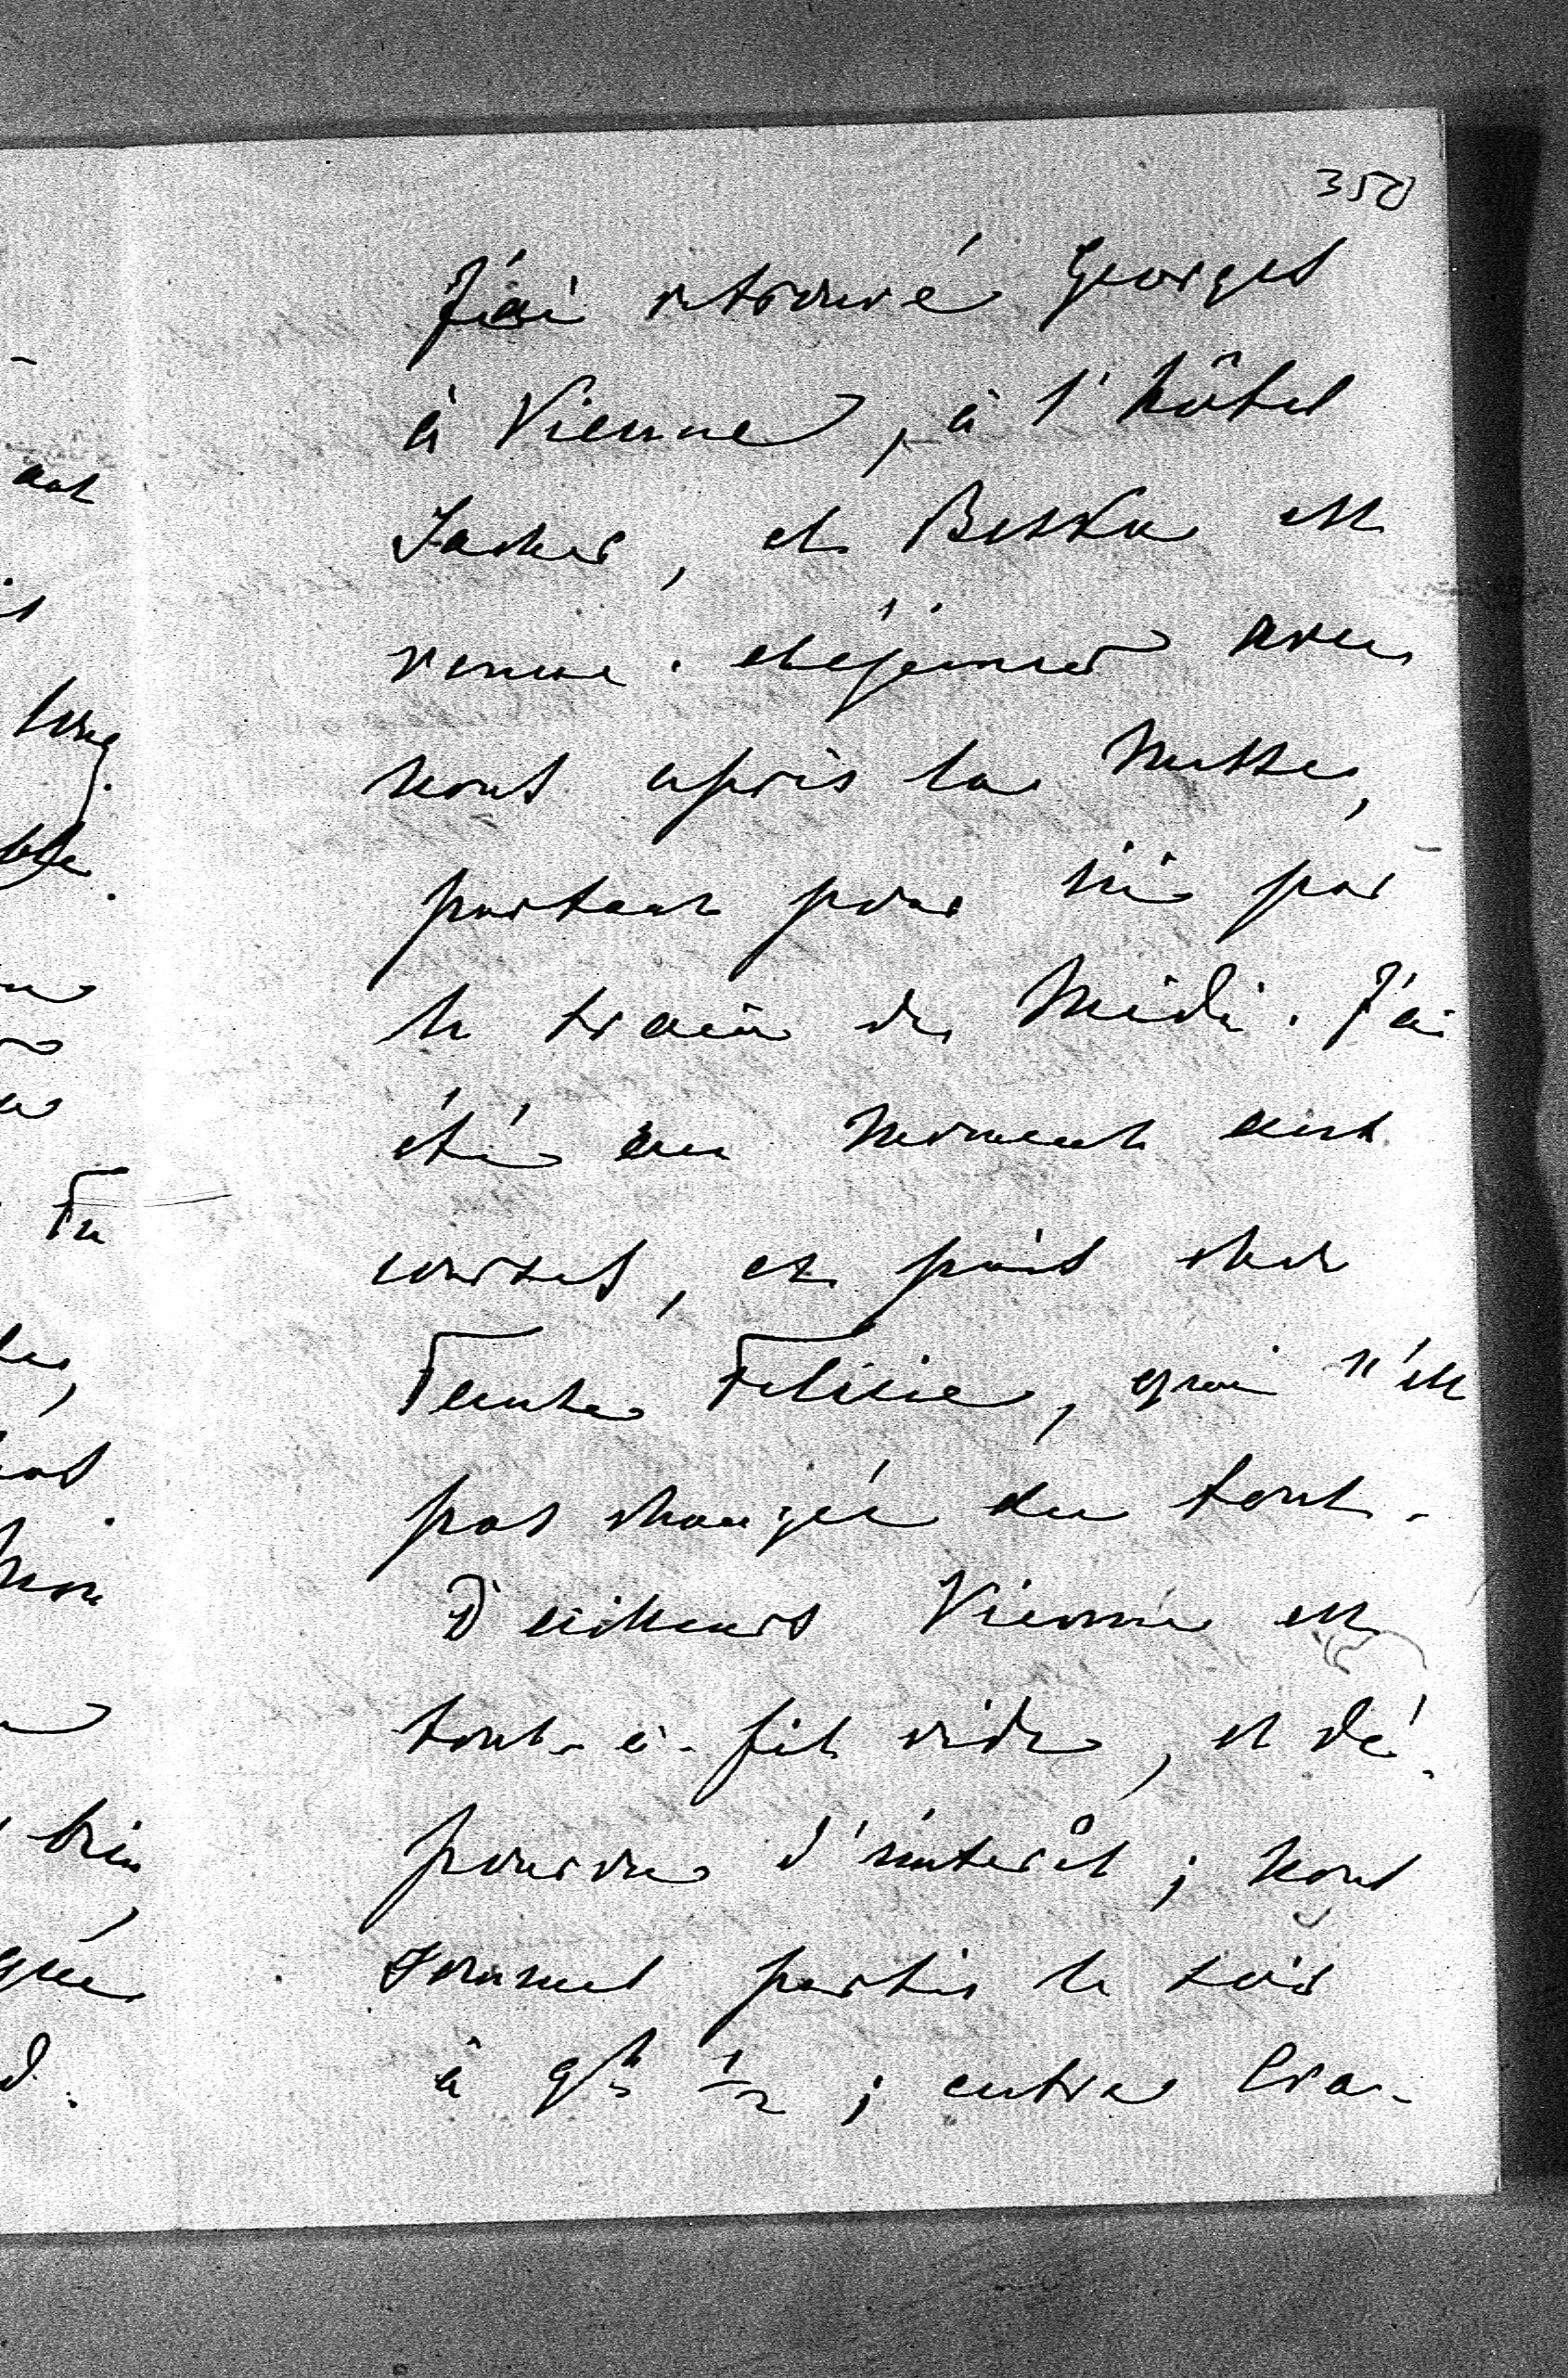 350
J'ai retrouvé Georges
à Vienne, à l'hôtel
Sacher, et Betka est
venue déjeuner avec
nous après la Messe,
partant pour  par
le train de Midi. J'ai
été un moment aux
courses, et puis chez
Tante Félicie, qui n'est
pas changée du tout.
D'ailleurs Vienne est
tout-à-fait vide, et dé-
pourvue d'intérêt; nous
sommes partis le soir
à 9h ½; entre Cra-
ant
long
Tu
mon
bien,